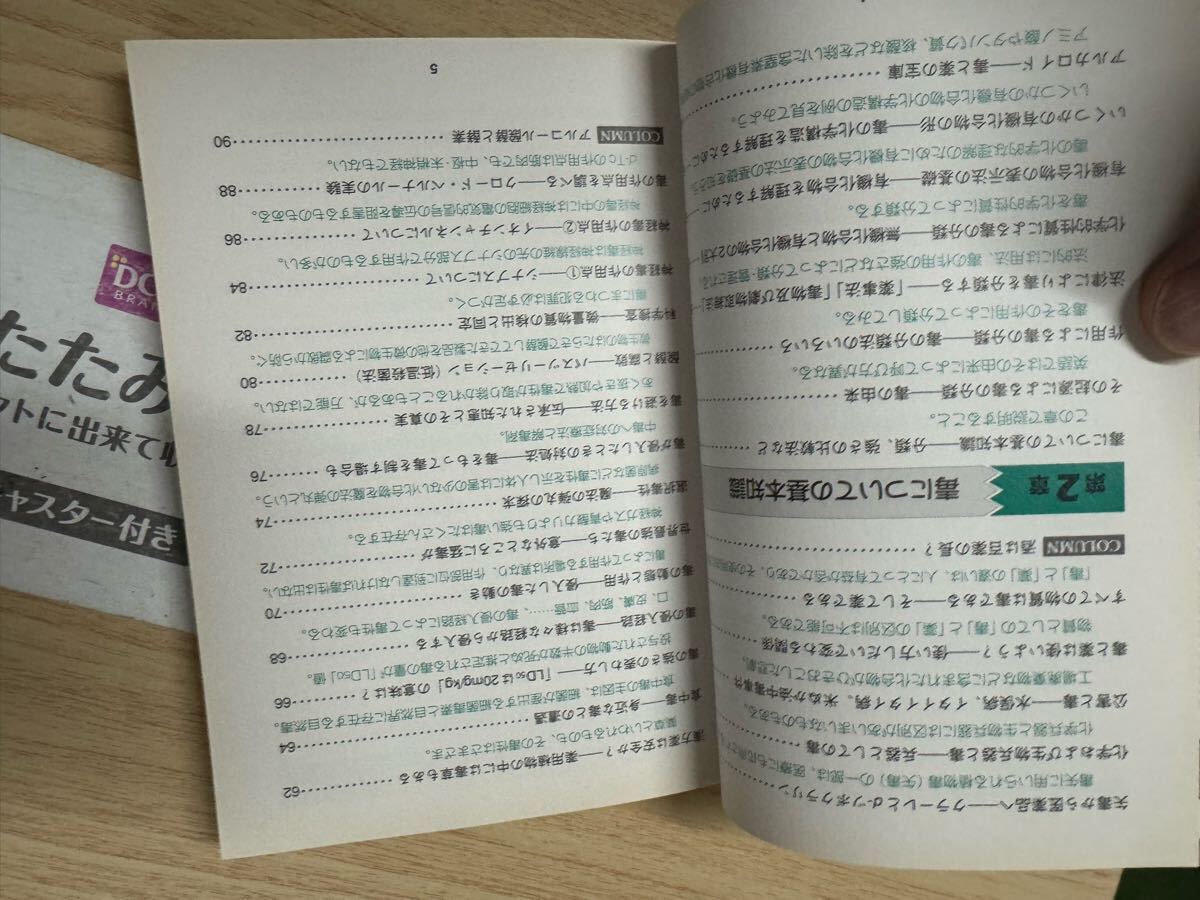 矢毒から医薬品へ――クラーレとd-ツボクラリン
毒矢に用いられる植物毒（矢毒）の一部は、医療にも応用
化学および生物兵器と毒――兵器としての毒
化学兵器と生物兵器には区別があいまいなものもある。
公害と毒――水俣病、イタイイタイ病、米ぬか油中毒事件
工場廃棄物などに含まれた化合物がひきおこした悲劇。
毒と薬は使いよう？――使い方しだいで変わる関係
物質としての「毒」と「薬」の区別は不可能である。
すべての物質は毒である――そして薬である
「毒」と「薬」の違いは、人にとって有益か否かであり、その使用
COLUMN 酒は百薬の長？
第2章 毒についての基本知識
毒についての基本知識――分類、強さの比較法など
この章で説明すること。
その起源による毒の分類――毒の由来
英語ではその由来によって呼び方が異なる。
作用による毒の分類――毒の分類法のいろいろ
毒をその作用によって分類してみる。
法律により毒を分類する――「薬事法」「毒物及び劇物取締法」
法的には用法、毒の作用の強さなどによって分類・管理される
化学的性質による毒の分類――無機化合物と有機化合物の2大別
毒を化学的性質によって分類する。
有機化合物の表示法の基礎――有機化合物を理解するために
毒の化学的な理解のために有機化合物の表示の法の基礎を知ろう
いくつかの有機化合物の形――毒の化学構造を理解するために
いくつかの有機化合物の化学構造の例を見てみよう。
アルカロイド――毒と薬の宝庫
アミノ酸やタンパク質、核酸などを除いた含窒素有機化合物
漢方薬は安全か？――薬用植物の中には毒草もある 62
薬草といわれるものも、その毒性はさまざま。
食中毒――身近な毒との遭遇 64
食中毒の主因は、細菌が産出する細菌毒素と自然界に存在する自然毒。
毒の強さの表わし方――「LD50は20mg/kg」の意味は？ 66
投与された動物の半数が死ぬと推定される毒の量が「LD50」値。
毒の侵入経路――毒は様々な経路から侵入する 68
口、皮膚、筋肉、血管……、毒の侵入経路によって毒性も変わる。
毒の動態と作用――侵入した毒の動き 70
毒によって作用する場所は異なり、作用部位に到達しなければ毒性は出ない。
世界最強の毒たち――意外なところに猛毒が 72
神経ガスや青酸カリよりも強い毒はたくさん存在する。
選択毒性――魔法の弾丸の探求 74
病原菌などに毒性を示し人体には害の少ない化合物を魔法の弾丸という。
毒が侵入したときの対処法――毒をもって毒を制す場合も 76
中毒への対症療法と解毒剤。
毒を避ける方法――伝承された知恵とその真実 78
あく抜きや加熱で毒性が取り除かれることもあるが、万能ではない。
醗酵と腐敗――パスツーリゼーション（低温殺菌法） 80
微生物のはたらきで醗酵してできた製品を他の微生物による腐敗から防ぐ。
科学捜査――微量物質の検出と同定 82
毒にまつわる犯罪は必ず足がつく。
神経毒の作用点①――シナプスについて 84
神経毒は神経線維の先のシナプス部分で作用するものが多い。
神経毒の作用点②――イオンチャンネルについて 86
神経毒の中には神経細胞の電気的信号の伝導を阻害するものもある。
毒の作用点を調べる――クロード・ベルナールの実験 88
d-Tcの作用点は筋肉でも、中枢・末梢神経でもない。
COLUMN アルコール醗酵と酵素 90
5
DC
BRA
たたみ
クトに出来て収
ャスター付き